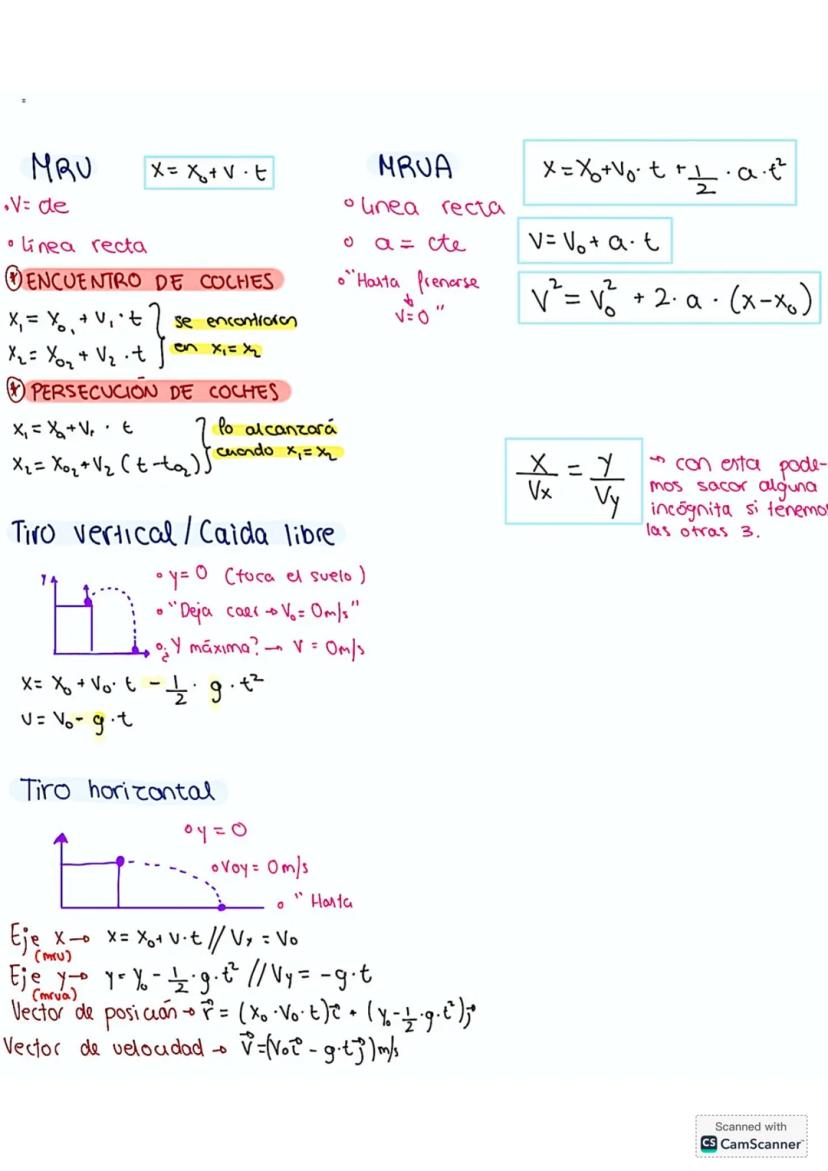 MRU
x = x₀ + v · t
• v = de
• línea recta
* ENCUENTRO DE COCHES
x₁ = x₀₁ + v₁ · t
x₂ = x₀₂ + v₂ · t
se encontrarán
en x₁ = x₂
* PERSECUCIÓN DE COCHES
x₁ = x₀ + v₁ · t
x₂ = x₀₂ + v₂ (t - t₀₂)
lo alcanzará
cuando x₁ = x₂
MRUA
• línea recta
• a = cte
• "Hasta frenarse
v = 0"
x = x₀ + v₀ · t + 1/2 · a · t²
v = v₀ + a · t
v² = v₀² + 2 · a · (x - x₀)
x/Vx = y/Vy
→ con esta pode-
mos sacar alguna
incógnita si tenemos
las otras 3.
Tiro vertical / Caída libre
y
• y = 0 (toca el suelo)
• "Deja caer → v₀ = 0 m/s"
• ¿y máxima? → v = 0 m/s
x = x₀ + v₀ · t - 1/2 · g · t²
v = v₀ - g · t
Tiro horizontal
• y = 0
• v₀y = 0 m/s
• "Hasta
Eje x → x = x₀ + v · t // Vx = V₀
(mru)
Eje y → y = y₀ - 1/2 · g · t² // Vy = -g · t
(mrua)
Vector de posición → r⃗ = (x₀ · v₀ · t) i⃗ + (y₀ - 1/2 · g · t²) j⃗
Vector de velocidad → v⃗ = (v₀ i⃗ - g · t j⃗) m/s
Scanned with
CS CamScanner